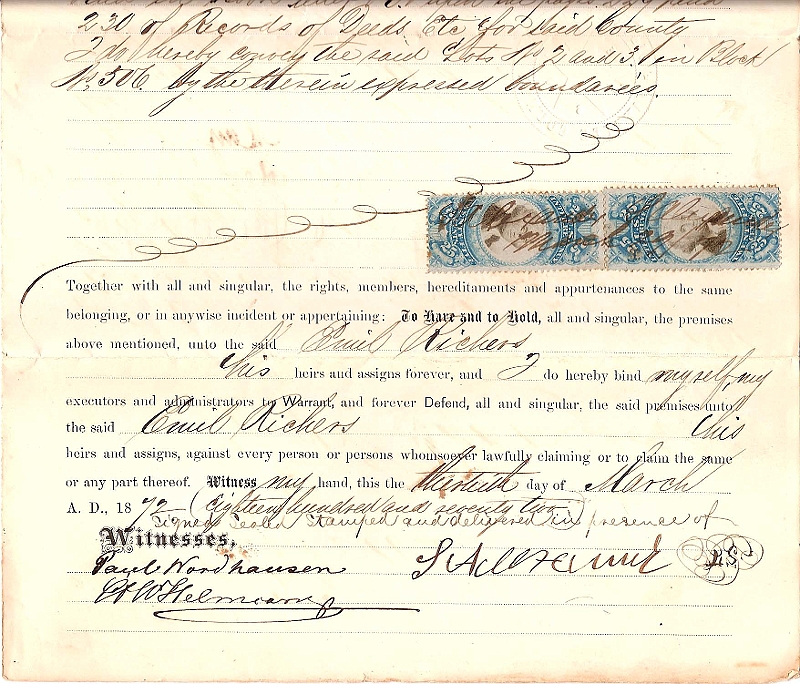 230 of Records of Deeds Etc for said County
I do hereby convey the said Lots No 2 and 3. in Block
No 506. by the therein expressed boundaries.
Together with all and singular, the rights, members, hereditaments and appurtenances to the same
belonging, or in anywise incident or appertaining: To Have and to Hold, all and singular, the premises
above mentioned, unto the said Emil Richers
his heirs and assigns forever, and I do hereby bind myself, my
executors and administrators to Warrant, and forever Defend, all and singular, the said premises unto
the said Emil Richers his
heirs and assigns, against every person or persons whomsoever lawfully claiming or to claim the same
or any part thereof. Witness my hand, this the thirtieth day of March
A. D., 1872 (eighteen hundred and seventy two)
Signed Sealed Stamped and delivered in presence of
Witnesses,
Paul Nordhausen
L.S.